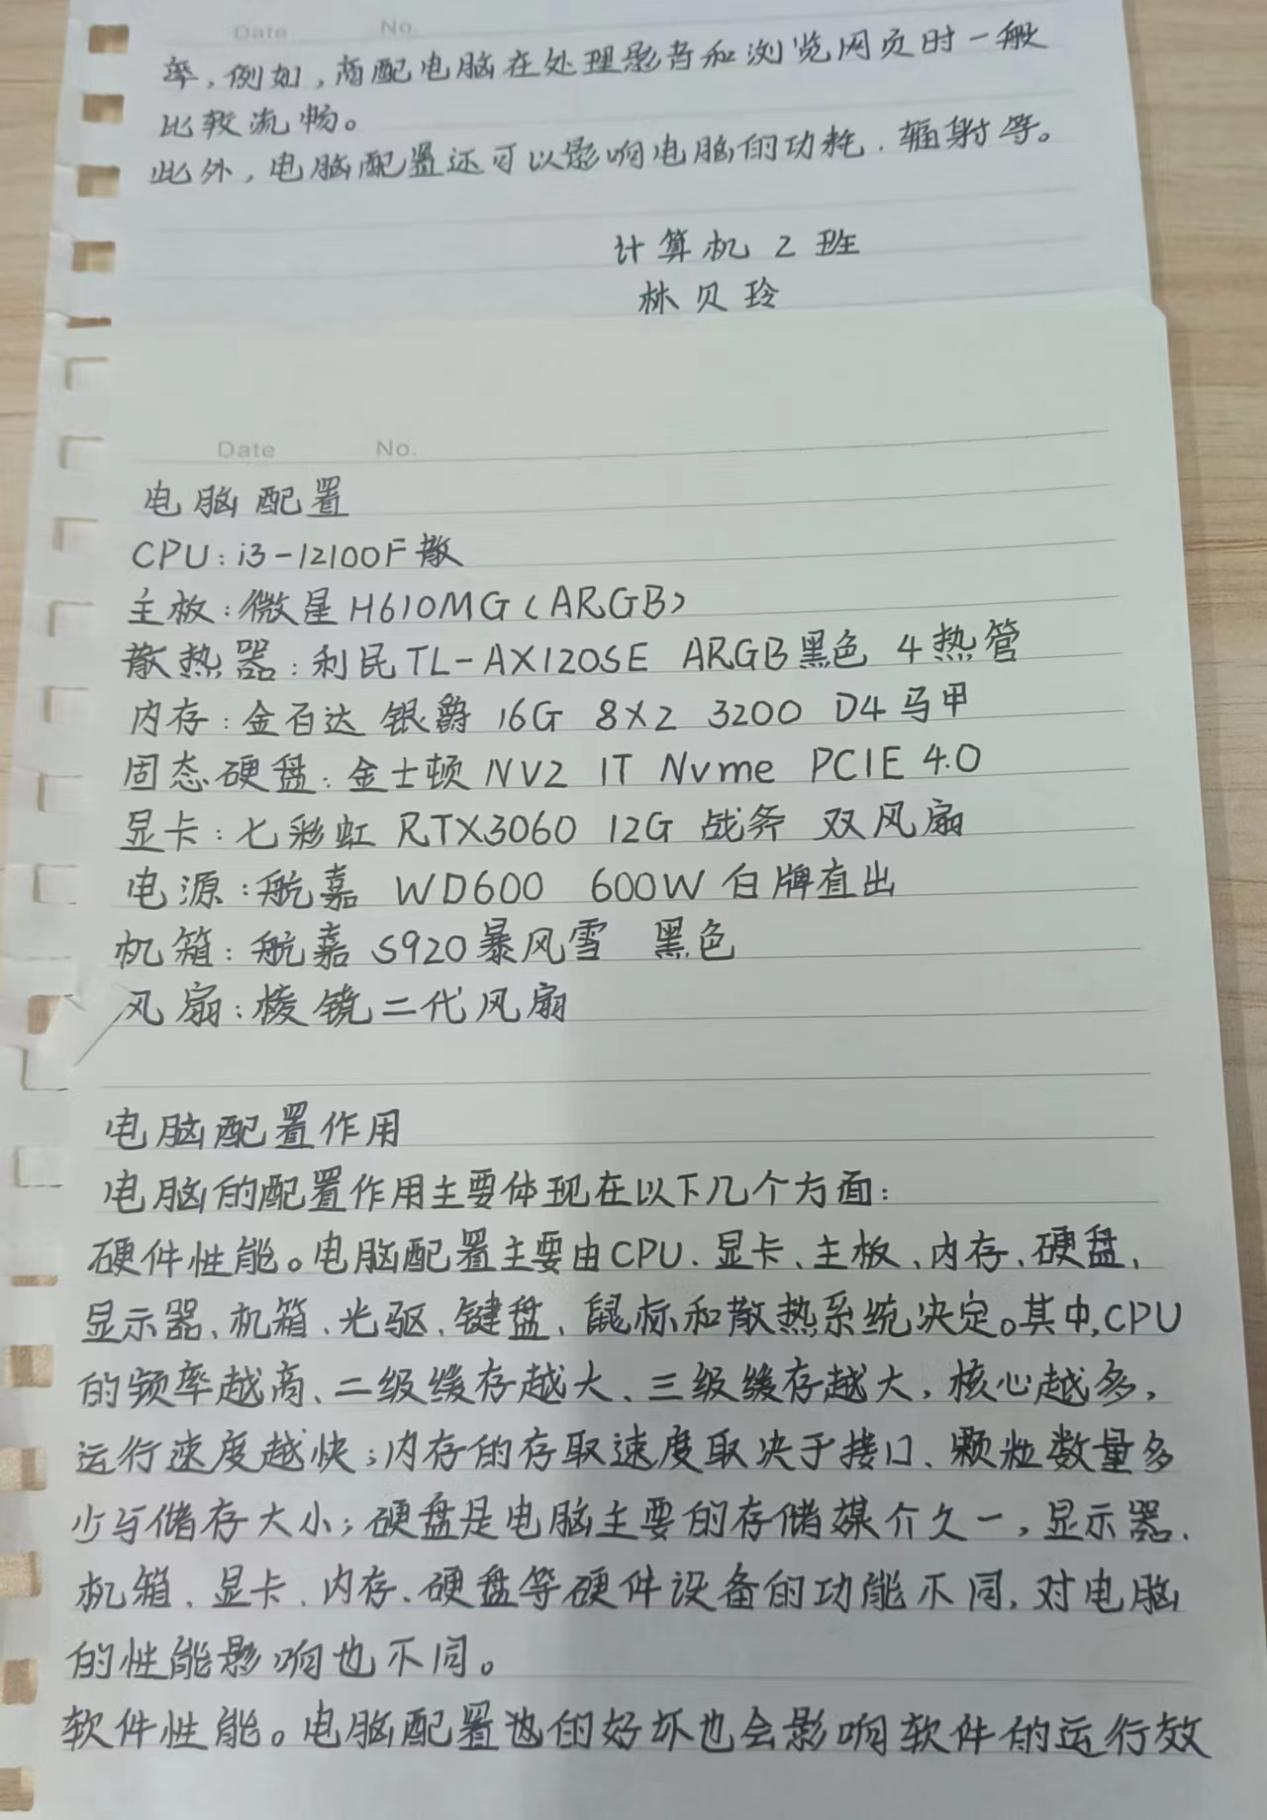 Date No.
率，例如，高配电脑在处理影音和浏览网页时一般
比较流畅。
此外，电脑配置还可以影响电脑的功耗、辐射等。
计算机2班
林贝玲
Date No.
电脑配置
CPU：i3-12100F散
主板：微星H610MG（ARGB）
散热器：利民TL-AX120SE ARGB黑色 4热管
内存：金百达 银爵 16G 8X2 3200 D4马甲
固态硬盘：金士顿NV2 1T Nvme PCIE 4.0
显卡：七彩虹 RTX3060 12G 战斧 双风扇
电源：航嘉 WD600 600W白牌直出
机箱：航嘉 S920暴风雪 黑色
风扇：棱镜二代风扇
电脑配置作用
电脑的配置作用主要体现在以下几个方面：
硬件性能。电脑配置主要由CPU、显卡、主板、内存、硬盘、
显示器、机箱、光驱、键盘、鼠标和散热系统决定。其中，CPU
的频率越高、二级缓存越大、三级缓存越大，核心越多，
运行速度越快；内存的存取速度取决于接口、颗粒数量多
少与储存大小；硬盘是电脑主要的存储媒介之一，显示器、
机箱、显卡、内存、硬盘等硬件设备的功能不同，对电脑
的性能影响也不同。
软件性能。电脑配置也的好坏也会影响软件的运行效